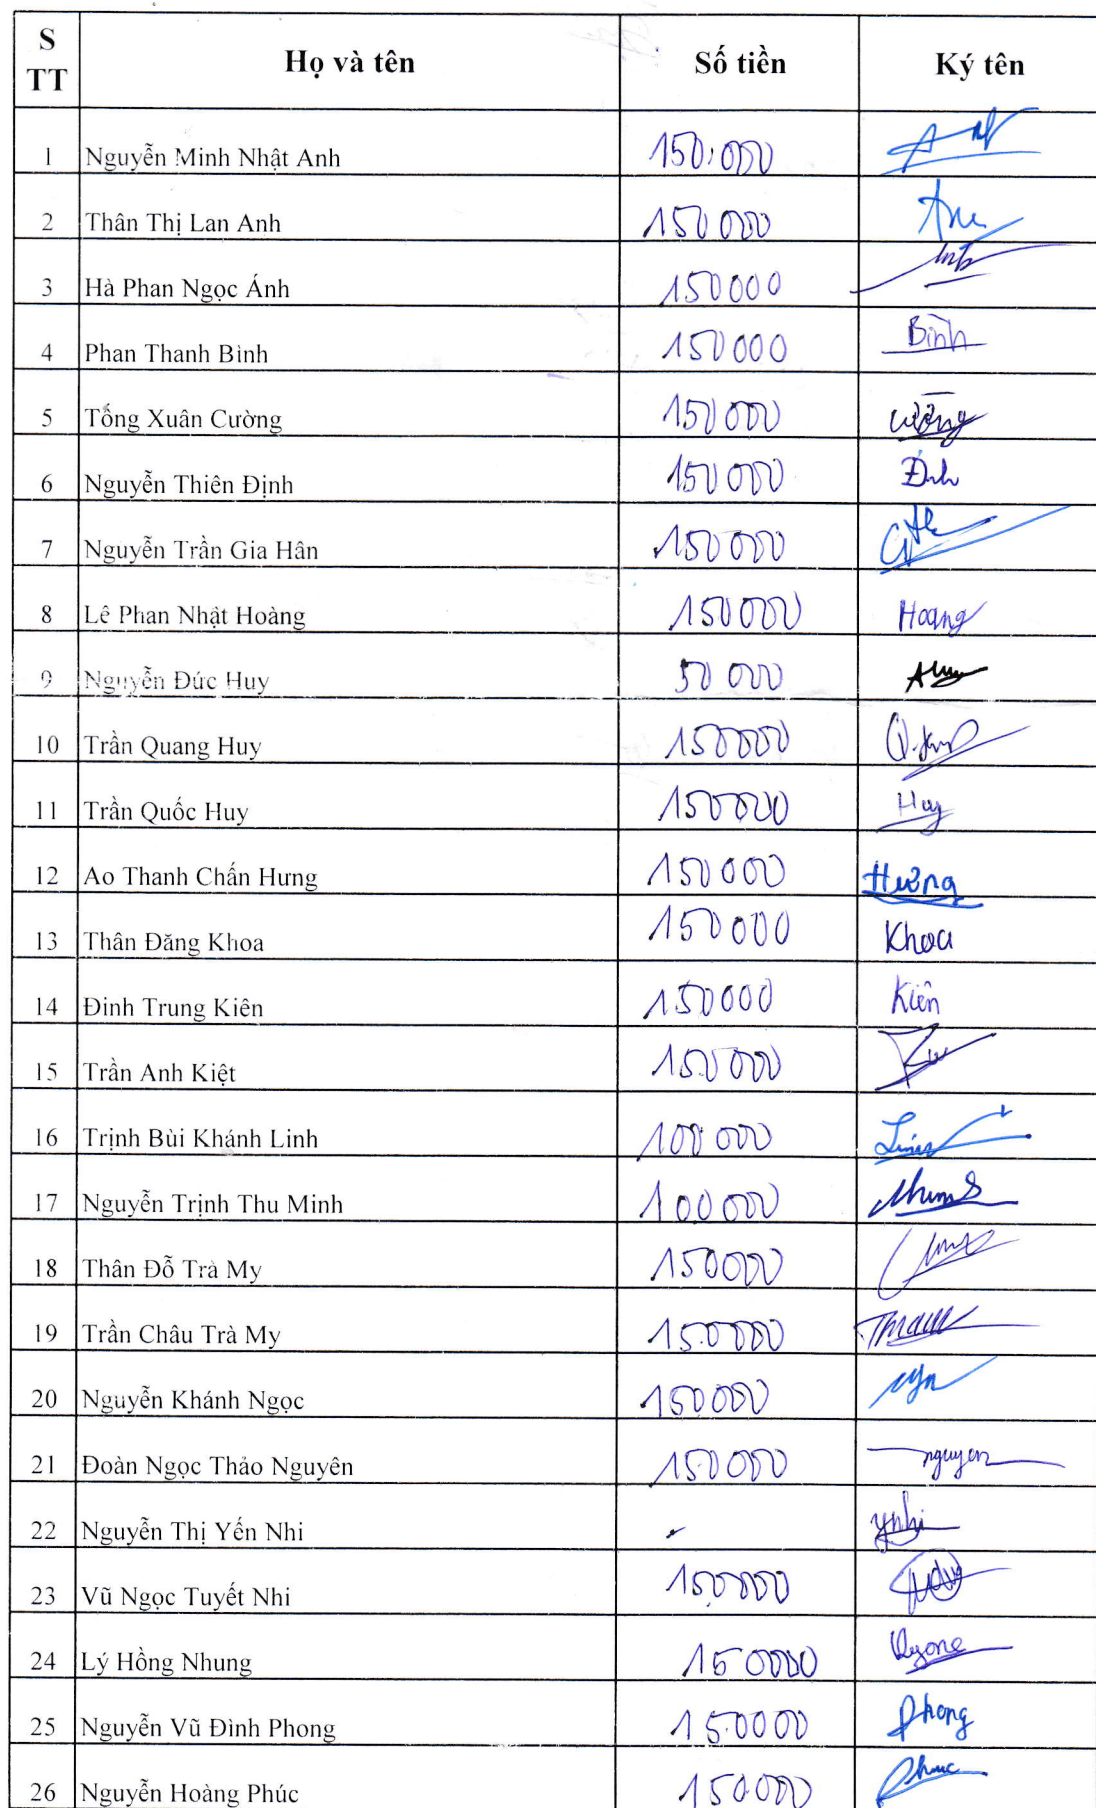 S TT Họ và tên Số tiền Ký tên
1 Nguyễn Minh Nhật Anh 150.000
2 Thân Thị Lan Anh 150 000
3 Hà Phan Ngọc Ánh 150000
4 Phan Thanh Bình 150000 Bình
5 Tống Xuân Cường 150000 Cường
6 Nguyễn Thiên Định 150 000
7 Nguyễn Trần Gia Hân 150000
8 Lê Phan Nhật Hoàng 150000 Hoang
9 Nguyễn Đức Huy 50 000
10 Trần Quang Huy 150000
11 Trần Quốc Huy 150000 Huy
12 Ao Thanh Chấn Hưng 150000 Hưng
13 Thân Đăng Khoa 150000 Khoa
14 Đinh Trung Kiên 150000 Kiên
15 Trần Anh Kiệt 150 000
16 Trịnh Bùi Khánh Linh 100 000
17 Nguyễn Trịnh Thu Minh 100000
18 Thân Đỗ Trà My 150000
19 Trần Châu Trà My 150000
20 Nguyễn Khánh Ngọc 150000
21 Đoàn Ngọc Thảo Nguyên 150000 nguyen
22 Nguyễn Thị Yến Nhi ynhi
23 Vũ Ngọc Tuyết Nhi 150000
24 Lý Hồng Nhung 150000
25 Nguyễn Vũ Đình Phong 150000 Phong
26 Nguyễn Hoàng Phúc 150000 Phuc